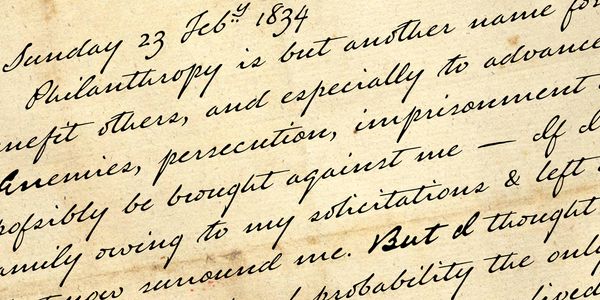 Sunday 23 Feb.y 1834
Philanthropy is but another name for
nefit others, and especially to advance
Enemies, persecution, imprisonment
ofsibly be brought against me — If I
amily owing to my solicitations & left
surround me. But I thought
probability the only
lived